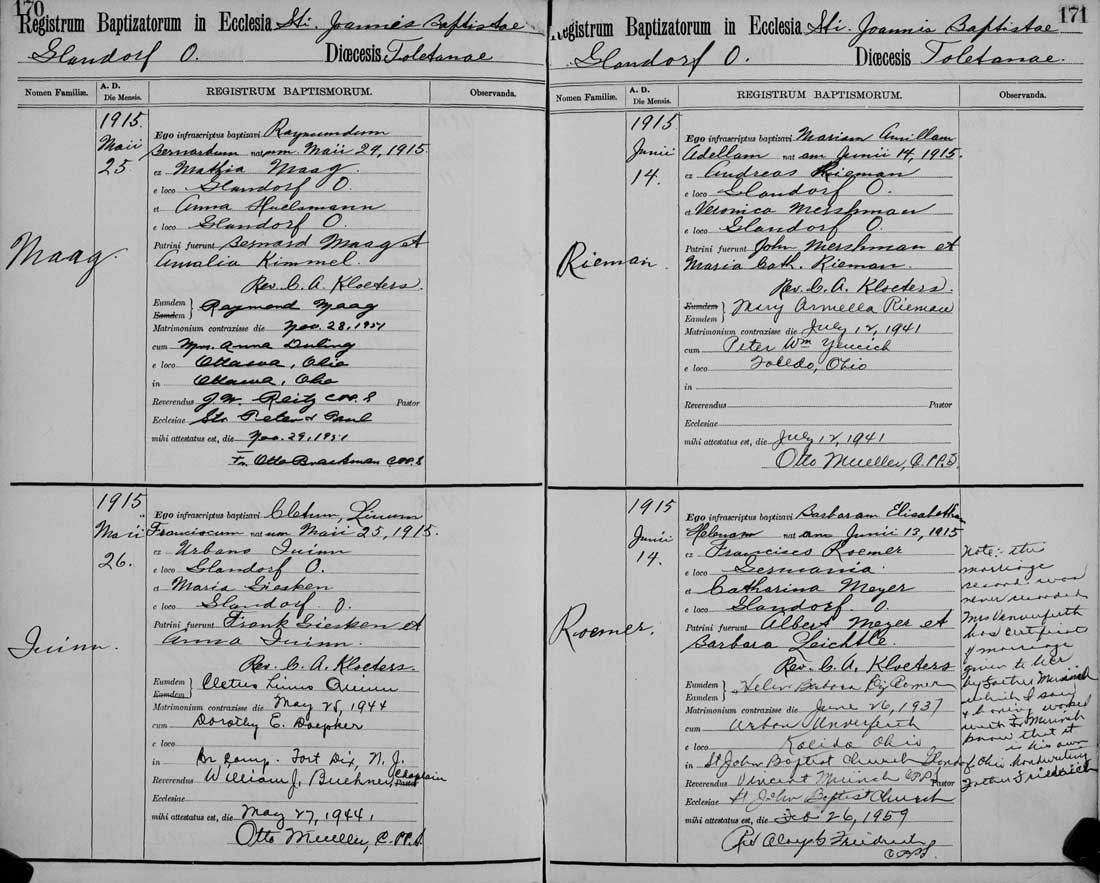 170
Registrum Baptizatorum in Ecclesia Sti. Joannis Baptistae
Glandorf O. Diœcesis Toletanae
Nomen Familiæ. A. D. Die Mensis. REGISTRUM BAPTISMORUM. Observanda.
1915.
Maii
25.
Maag.
Ego infrascriptus baptizavi Raymundum
Bernardum natum Maii 24, 1915.
ex Mathia Maag
e loco Glandorf O.
et Anna Huelsmann
e loco Glandorf O.
Patrini fuerunt Bernard Maag et
Amalia Kimmel.
Rev. C. A. Kloeters.
Eumdem
Eamdem } Raymond Maag
Matrimonium contraxisse die Nov. 28, 1951
cum Mrs. Anna Duling
e loco Ottawa, Ohio
in Ottawa, Oho
Reverendus J. W. Reitz CPP.S Pastor
Ecclesiae Sts. Peter & Paul
mihi attestatus est, die Nov. 29, 1951
Fr. Otto Brackman CPP.S
1915
Maii
26.
Quinn.
Ego infrascriptus baptizavi Cletum, Linum
Franciscum natum Maii 25, 1915.
ex Urbano Quinn
e loco Glandorf O.
et Maria Giesken
e loco Glandorf. O.
Patrini fuerunt Frank Giesken et
Anna Quinn.
Rev. C. A. Kloeters.
Eumdem
Eamdem } Cletus Linus Quinn
Matrimonium contraxisse die May 25, 1944
cum Dorothy E. Doepker
e loco
in In Camp. Fort Dix, N. J.
Reverendus William J. Buchner, Chaplain Pastor
Ecclesiae
mihi attestatus est, die May 27, 1944.
Otto Mueller, C.PP.S.
171
Registrum Baptizatorum in Ecclesia Sti. Joannis Baptistae
Glandorf O. Diœcesis Toletanae.
Nomen Familiæ. A. D. Die Mensis. REGISTRUM BAPTISMORUM. Observanda.
1915
Junii
14.
Rieman.
Ego infrascriptus baptizavi Mariam Amillam
Adellam natam Junii 14, 1915.
ex Andreas Rieman
e loco Glandorf O.
et Veronica Mershman
e loco Glandorf O.
Patrini fuerunt John Mershman et
Maria Cath. Rieman.
Rev. C. A. Kloeters.
Eumdem
Eamdem } Mary Armella Rieman
Matrimonium contraxisse die July 12, 1941
cum Peter Wm Yencich
e loco Toledo, Ohio
in
Reverendus Pastor
Ecclesiae
mihi attestatus est, die July 12, 1941
Otto Mueller, C.PP.S.
1915
Junii
14.
Roemer.
Ego infrascriptus baptizavi Barbaram Elisabetham
Helenam natam Junii 13, 1915
ex Francisco Roemer
e loco Germania.
et Catharina Meyer
e loco Glandorf. O.
Patrini fuerunt Albert Meyer et
Barbara Leichtle.
Rev. C. A. Kloeters
Eumdem
Eamdem } Helen Barbara Roemer
Matrimonium contraxisse die June 26, 1937
cum Urban Unverferth
e loco Kalida Ohio
in St John Baptist Church Glandorf Ohio
Reverendus Vincent Muinch CPPS Pastor
Ecclesiae St John Baptist Church
mihi attestatus est, die Feb 26, 1959
Rev Aloys G Friedrich
CPPS.
Note:- the
marriage
record was
never recorded
Mrs Unverferth
has certificate
of marriage
given to her
by Father Muinch
which I saw
& having worked
with Fr Muinch
know that it
is his own
handwriting
Father Friedrich